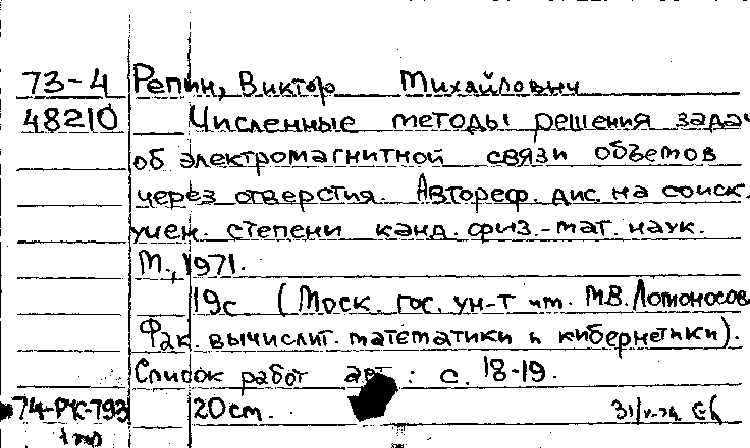 73-4 Репин, Виктор Михайлович
48210 Численные методы решения задач
об электромагнитной связи объемов
через отверстия. Автореф. дис. на соиск.
учен. степени канд. физ.-мат. наук.
М., 1971.
19с (Моск. гос. ун-т им. М.В. Ломоносова
Фак. вычислит. математики и кибернетики).
Список работ авт.: с. 18-19.
74-РК-793 20 см.